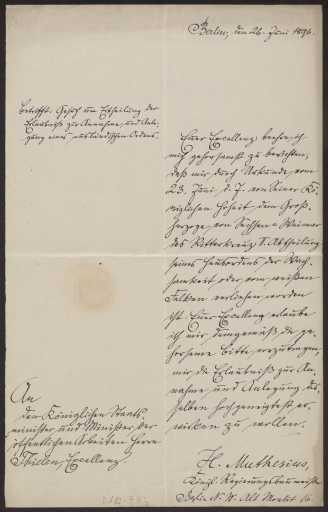 Berlin, den 26. Juni 1896.
Betrifft Gesuch um Ertheilung der
Erlaubniß zur Annahme und Anle-
gung eines ausländischen Ordens.
Euer Excellenz beehre ich
mich gehorsamst zu berichten,
daß mir durch Urkunde vom
23. Juni d. J. von Seiner Kö-
niglichen Hoheit dem Groß-
herzoge von Sachsen-Weimar
das Ritterkreuz II. Abtheilung
seines Hausordens der Wach-
samkeit oder vom weißen
Falken verliehen worden
ist. Euer Excellenz erlaube
ich mir demgemäß die ge-
horsame Bitte vorzutragen,
mir die Erlaubniß zur An-
nahme und Anlegung des-
selben hochgeneigtest er-
wirken zu wollen.
H. Muthesius,
Königl. Regierungsbaumeister
Berlin N. W. Alt Moabit
An
den Königlichen Staats-
minister und Minister der
öffentlichen Arbeiten Herrn
Thielen, Excellenz